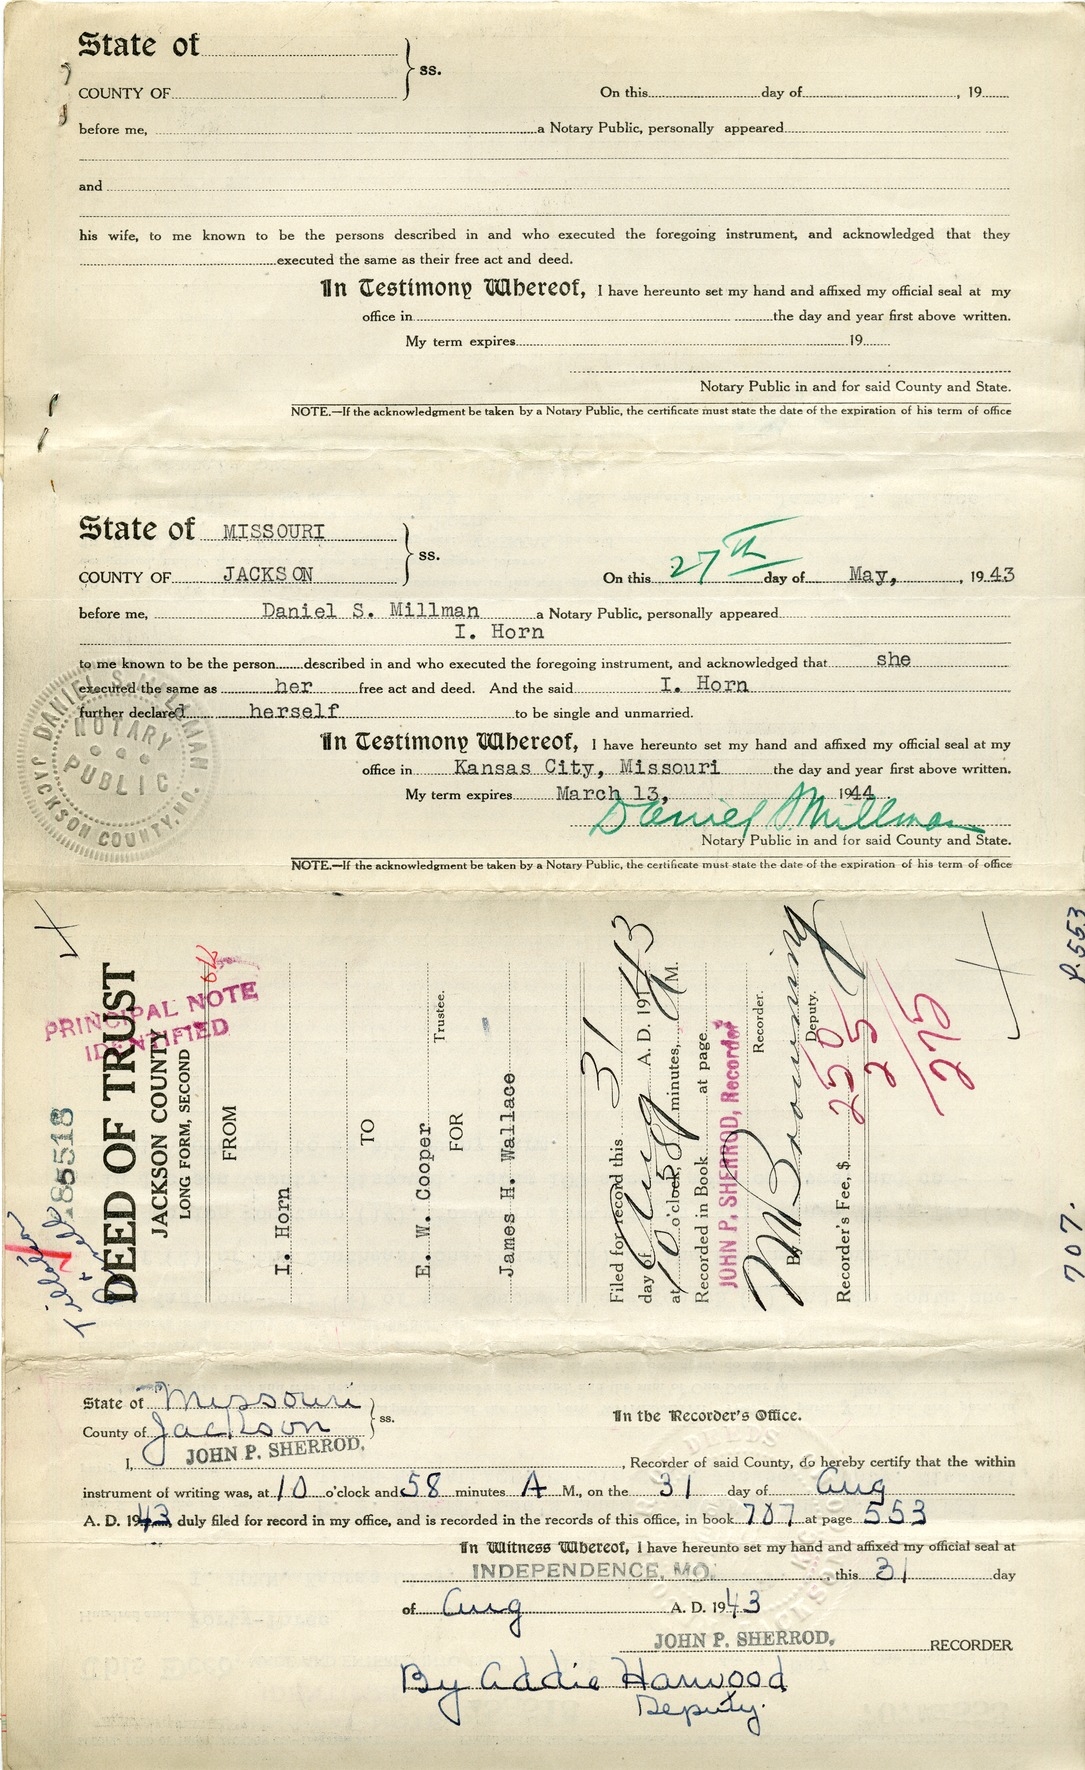 State of
ss.
COUNTY OF
On this day of , 19
before me, a Notary Public, personally appeared
and
his wife, to me known to be the persons described in and who executed the foregoing instrument, and acknowledged that they
executed the same as their free act and deed.
In Testimony Whereof, I have hereunto set my hand and affixed my official seal at my
office in the day and year first above written.
My term expires 19
Notary Public in and for said County and State.
NOTE.—If the acknowledgment be taken by a Notary Public, the certificate must state the date of the expiration of his term of office
State of MISSOURI
ss.
COUNTY OF JACKSON
On this 27th day of May, , 1943
before me, Daniel S. Millman a Notary Public, personally appeared
I. Horn
to me known to be the person described in and who executed the foregoing instrument, and acknowledged that she
executed the same as her free act and deed. And the said I. Horn
further declared herself to be single and unmarried.
In Testimony Whereof, I have hereunto set my hand and affixed my official seal at my
office in Kansas City, Missouri the day and year first above written.
My term expires March 13, 1944
Daniel S. Millman
Notary Public in and for said County and State.
NOTE.—If the acknowledgment be taken by a Notary Public, the certificate must state the date of the expiration of his term of office
DANIEL S. MILLMAN
NOTARY
PUBLIC
JACKSON COUNTY, MO.
PRINCIPAL NOTE
IDENTIFIED
DEED OF TRUST
JACKSON COUNTY
LONG FORM, SECOND
FROM
I. Horn
TO
E. W. Cooper Trustee.
FOR
James H. Wallace
Filed for record this 31
day of Aug A. D. 1943
at 10 o'clock, 58 minutes, A M.
Recorded in Book at page
JOHN P. SHERROD, Recorder
Recorder.
By M Browning
Deputy.
Recorder's Fee, $ 250
25
275
P. 553
707.
State of Missouri
ss.
County of Jackson
In the Recorder's Office.
I, JOHN P. SHERROD, , Recorder of said County, do hereby certify that the within
instrument of writing was, at 10 o'clock and 58 minutes A M., on the 31 day of Aug
A. D. 1943, duly filed for record in my office, and is recorded in the records of this office, in book 707 at page 553
In Witness Whereof, I have hereunto set my hand and affixed my official seal at
INDEPENDENCE, MO. , this 31 day
of Aug A. D. 1943
JOHN P. SHERROD, RECORDER
By Addie Harwood
Deputy.